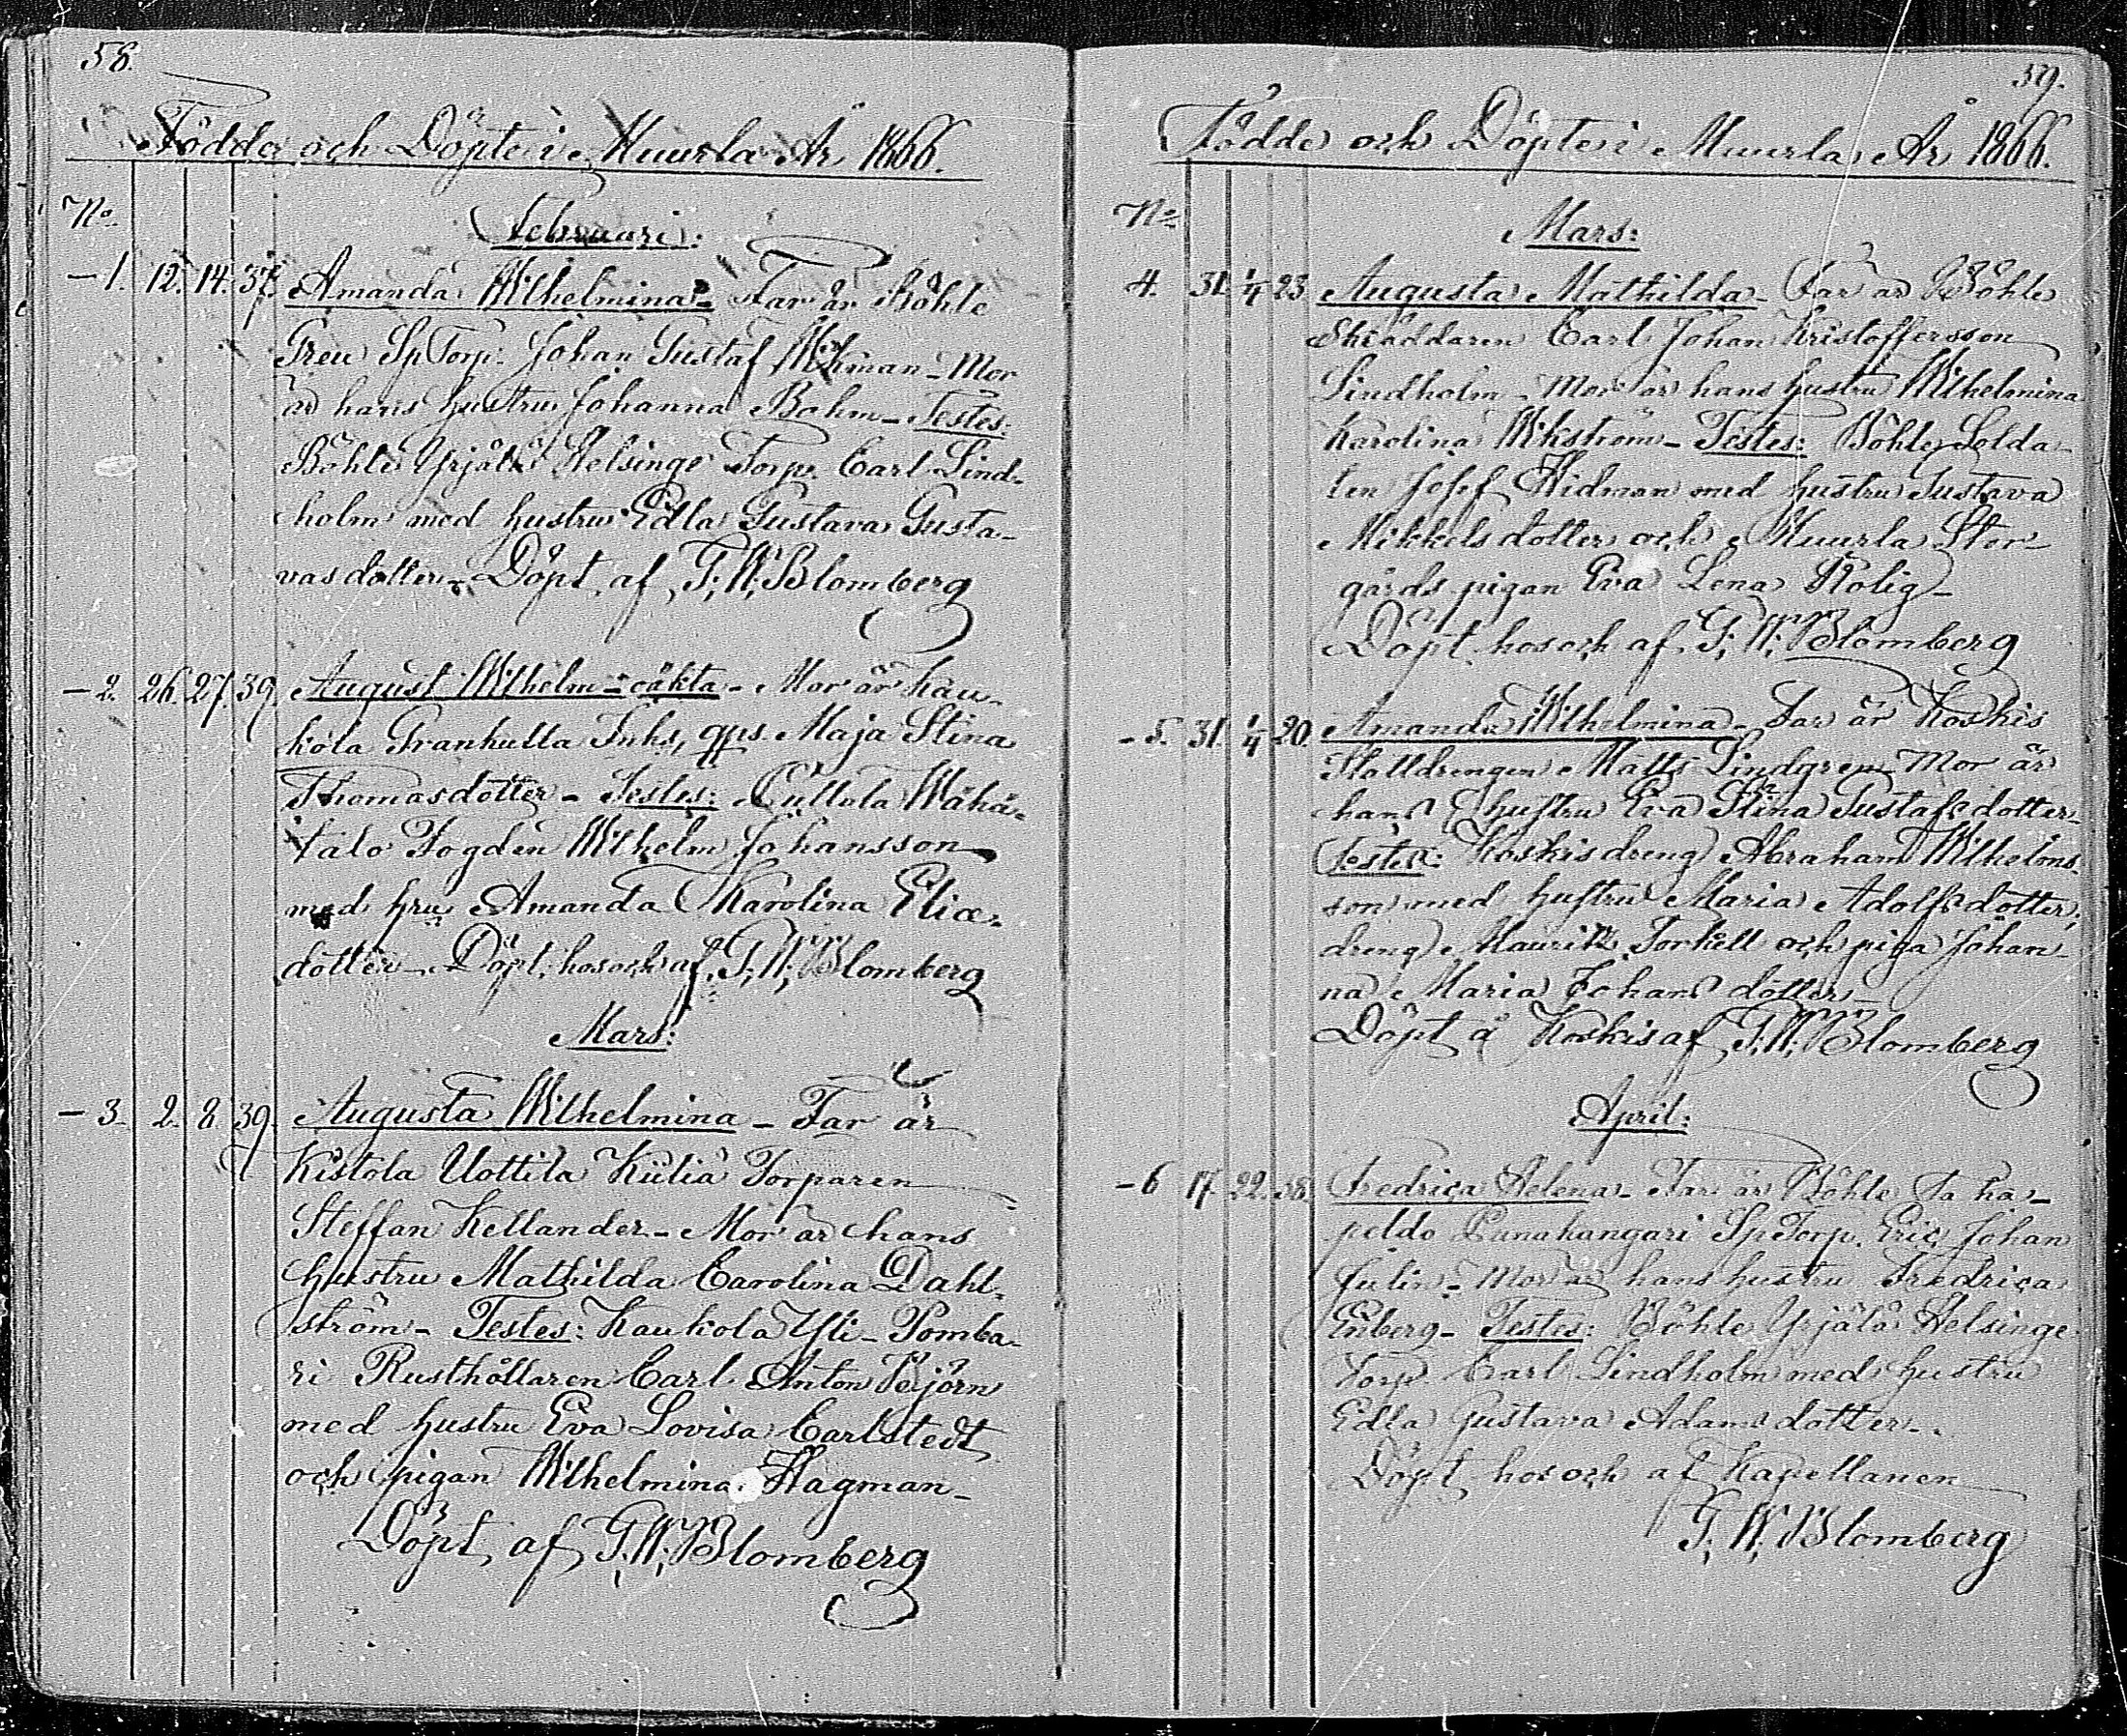 58.
Födde och Döpte i Muurla År 1866.
No.
Februari:
-1. 12. 14. 37. Amanda Wilhelmina - Far är Böhle
Greu SpTorp. Johan Gustaf Wikman - Mor
är hans hustru Johanna Bohm - Testes:
Böhle Yrjälä Helsinge Torp. Carl Lind-
holm med hustru Edla Gustava Gusta-
vasdotter - Döpt af G: W: Blomberg
-2. 26. 27. 39. August Wilhelm - oäkta - Mor är Kau-
kola Grankulla Inhs, qps Maja Stina
Thomasdotter - Testes: Cullola Wähä-
talo Fogden Wilhelm Johansson
med hru Amanda Karolina Eliæ-
dotter - Döpt hos och af G: W: Blomberg
Mars:
-3. 2. 8. 39. Augusta Wilhelmina - Far är
Kistola Uottila Kiilia Torparen
Steffan Kellander - Mor är hans
hustru Mathilda Carolina Dahl-
ström - Testes: Kaukola Yli-Pomba-
ri Rusthållaren Carl Anton Björn
med hustru Eva Lovisa Carlstedt
och pigan Wilhelmina Hagman -
Döpt af G: W: Blomberg
59.
Födde och Döpte i Muurla År 1866.
No
Mars:
4. 31. 1/4 23 Augusta Mathilda - Far är Böhle
Skräddaren Carl Johan Kristoffersson
Lindholm - Mor är hans hustru Wilhelmina
Karolina Wikström - Testes: Böhle Solda-
ten Josef Widman med hustru Gustava
Mikkelsdotter och Muurla Stor-
gårds pigan Eva Lena Rolig -
Döpt hos och af G: W: Blomberg
-5. 31. 1/4 20. Amanda Wilhelmina - Far är Koskis
Stalldrengen Matts Lindgren - Mor är
hans hustru Eva Stina Gustafsdotter -
Testes: Koskis dreng Abraham Wilhelms-
son med hustru Maria Adolfsdotter,
dreng Mauritz Torkell och piga Johan-
na Maria Johansdotter -
Döpt å Koskis af G: W: Blomberg
April:
-6 17. 22. 38. Fredrica Helena - Far är Böhle Taka-
peldo Punakangari SpTorp. Eric Johan
Julin - Mor är hans hustru Fredrica
Enberg - Testes: Böhle Yrjälä Helsinge
Torp Carl Lindholm med hustru
Edla Gustava Adamsdotter -
Döpt hos och af Kapellanen
G: W: Blomberg